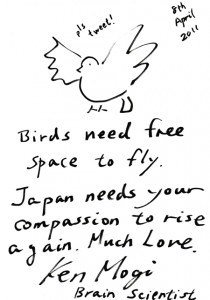 pls tweet!
8th
April
2011
Birds need free
space to fly.
Japan needs your
compassion to rise
again. Much Love.
Ken Mogi
Brain Scientist